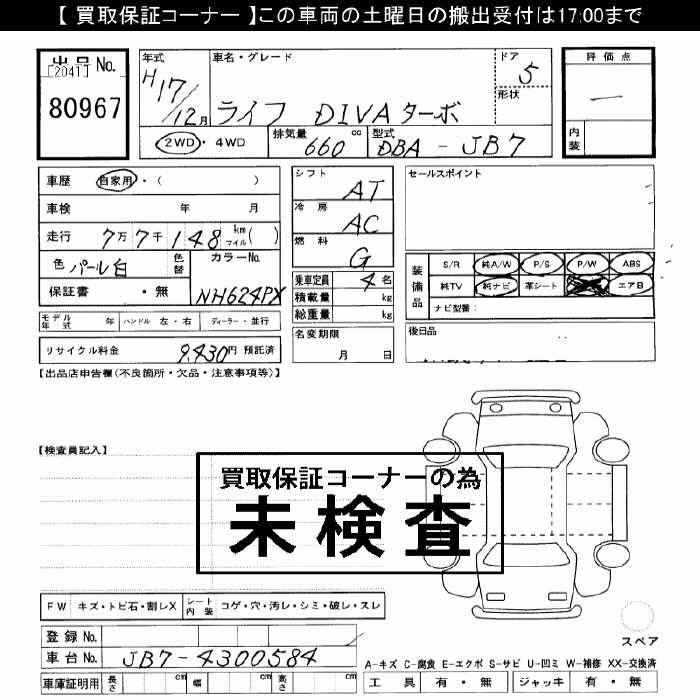 【 買取保証コーナー 】この車両の土曜日の搬出受付は17:00まで
出品No.
[2041]
80967
年式
H17/12月
車名・グレード
ライフ DIVAターボ
ドア
5
形状
評価点
—
内装
2WD・4WD
排気量 660 cc
型式 DBA - JB7
車歴 自家用・( )
車検 年 月
走行 7万7千148 km マイル( )
色 パール白
色替
カラーNo.
NH624PX
保証書 ・無
モデル年式 年 ハンドル 左・右 ディーラー・並行
リサイクル料金 9,430円 預託済
シフト AT
冷房 AC
燃料 G
乗車定員 4名
積載量 kg
総重量 kg
名変期限
月 日
セールスポイント
装備品
S/R 純A/W P/S P/W ABS
純TV 純ナビ 革シート エアB
ナビ型番:
後日品
【出品店申告欄(不良箇所・欠品・注意事項等)】
【検査員記入】
買取保証コーナーの為
未検査
FW キズ・トビ石・割レX シート内装 コゲ・穴・汚レ・シミ・破レ・スレ
登録No.
車台No. JB7-4300584
車庫証明用 長さ cm 幅 cm 高さ cm
スペア
A-キズ C-腐食 E-エクボ S-サビ U-凹ミ W-補修 XX-交換済
工具 有・無 ジャッキ 有・無